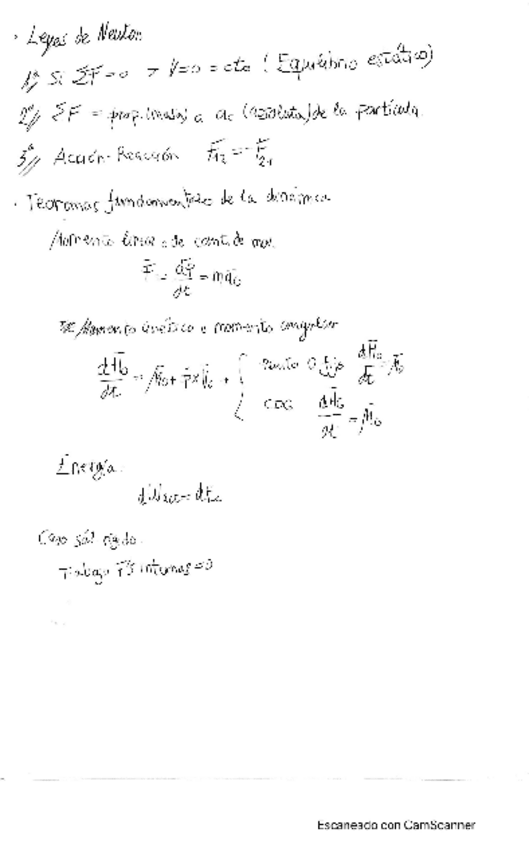 · Leyes de Newton
1ª// Si ΣF=0 → V=0=cte (Equilibrio estático)
2ª// ΣF = prop.(masa) a ac (absoluta) de la partícula.
3ª// Acción-Reacción F̄12=-F̄21
· Teoremas fundamentales de la dinámica
Momento lineal o de cant. de mov.
F̄ = dp̄/dt = māG
Momento cinético o momento angular
dH̄0/dt = M̄0 + p̄ x v̄0 + { Punto O fijo dH̄0/dt = M̄0
CDG dH̄G/dt = M̄G
Energía.
dEc
Caso sól. rígido.
Trabajo F's internas=0
Escaneado con CamScanner